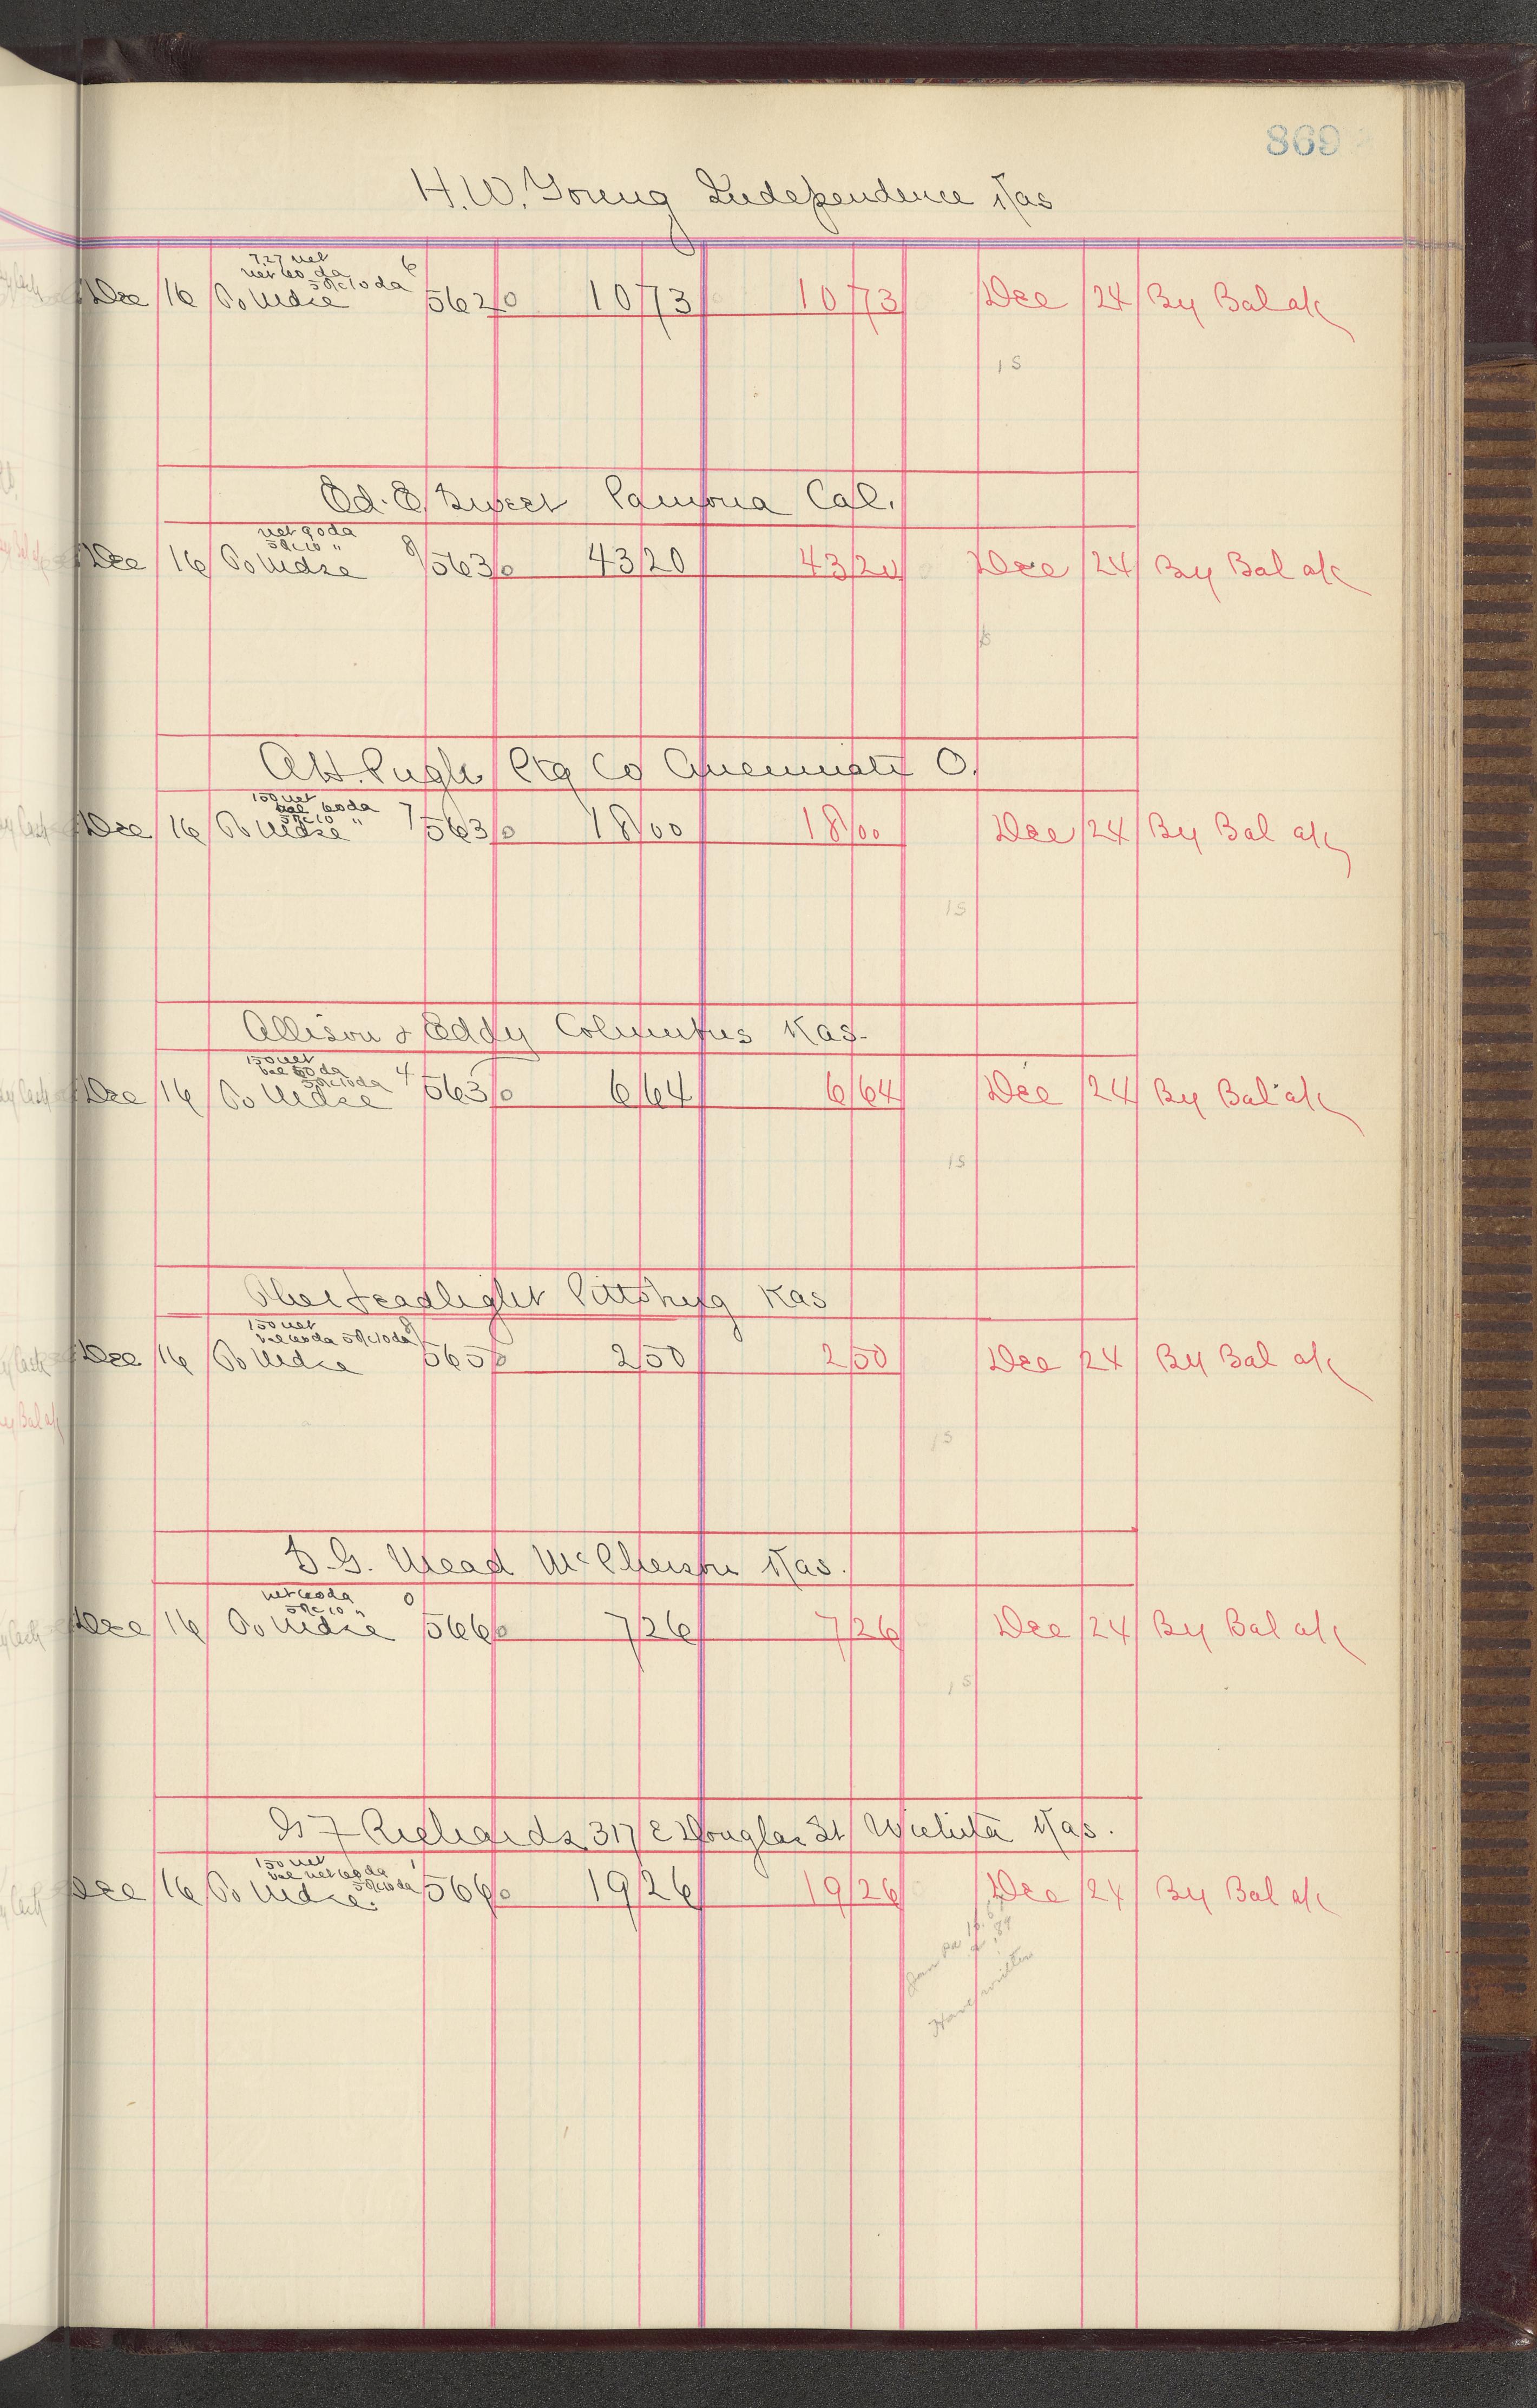 869
H.W. Young Independence Kas
7.27 net
net 60 da
5% 10 da 6
Dec 16 To Mdse 562 10 73 10 73 Dec 24 By Bal a/c
15
Ed. E. Sweet Pamona Cal.
net 90 da
5% 10 "
Dec 16 To Mdse 8 563 43 20 43 20 Dec 24 By Bal a/c
A.H. Pugh Ptg Co Cincinnati O.
150 net
bal 60 da
5% 10 "
Dec 16 To Mdse 7 563 18 00 18 00 Dec 24 By Bal a/c
15
Allison & Eddy Columbus Kas.
150 net
bal 60 da
5% 10 da 4
Dec 16 To Mdse 563 6 64 6 64 Dec 24 By Bal a/c
15
The Headlight Pittsburg Kas
150 net
bal 60 da 5% 10 da 8
Dec 16 To Mdse 565 2 50 2 50 Dec 24 By Bal a/c
15
D.G. Mead McPherson Kas.
net 60 da
5% 10 " 0
Dec 16 To Mdse 566 7 26 7 26 Dec 24 By Bal a/c
15
G F Richards 317 E Douglas St Wichita Kas.
150 net
bal net 60 da
5% 10 da 1
Dec 16 To Mdse. 566 19 26 19 26 Dec 24 By Bal a/c
Have written